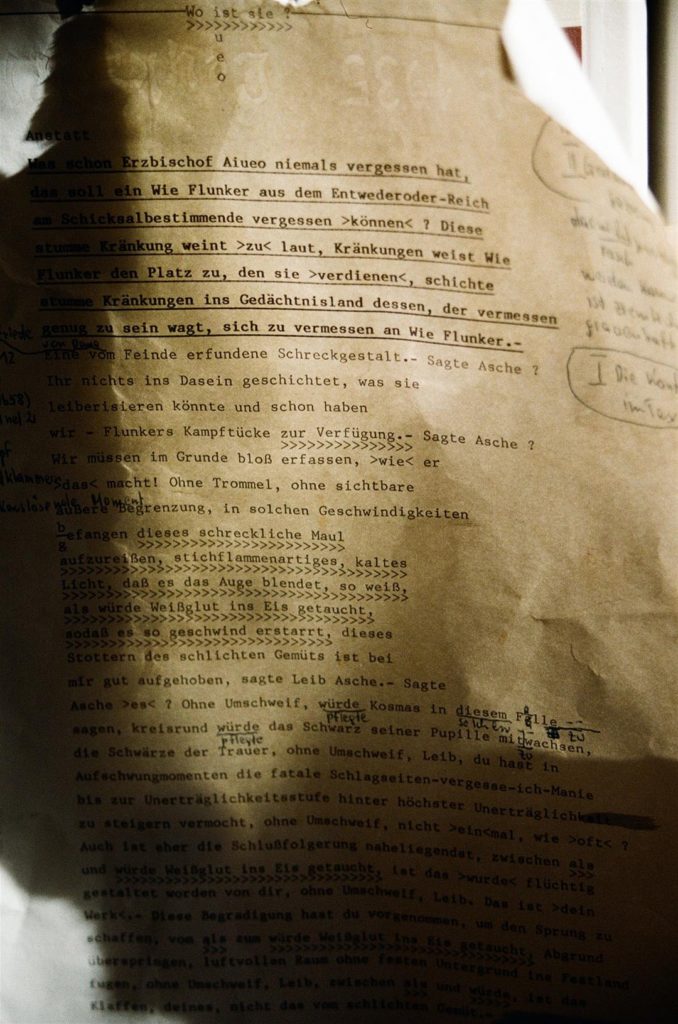 Wo ist sie ?
>>>>>>>>>>>>
u
e
o
Anstatt
Was schon Erzbischof Aiueo niemals vergessen hat,
das soll ein Wie Flunker aus dem Entwederoder-Reich
am Schicksalbestimmende vergessen >können< ? Diese
stumme Kränkung weint >zu< laut, Kränkungen weist Wie
Flunker den Platz zu, den sie >verdienen<, schichte
stumme Kränkungen ins Gedächtnisland dessen, der vermessen
genug zu sein wagt, sich zu vermessen an Wie Flunker.-
Eine vom Feinde erfundene Schreckgestalt.- Sagte Asche ?
Ihr nichts ins Dasein geschichtet, was sie
leiberisieren könnte und schon haben
wir - Flunkers Kampftücke zur Verfügung.- Sagte Asche ?
Wir müssen im Grunde bloß erfassen, >wie< er
>das< macht! Ohne Trommel, ohne sichtbare
äußere Begrenzung, in solchen Geschwindigkeiten
befangen dieses schreckliche Maul
aufzureißen, stichflammenartiges, kaltes
Licht, daß es das Auge blendet, so weiß,
als würde Weißglut ins Eis getaucht,
sodaß es so geschwind erstarrt, dieses
Stottern des schlichten Gemüts ist bei
mir gut aufgehoben, sagte Leib Asche.- Sagte
Asche >es< ? Ohne Umschweif, würde Kosmas in diesem Falle --
pflegte solchen zu
sagen, kreisrund würde das Schwarz seiner Pupille mitwachsen,
pflegte zu
die Schwärze der Trauer, ohne Umschweif, Leib, du hast in
Aufschwungmomenten die fatale Schlagseiten-vergesse-ich-Manie
bis zur Unerträglichkeitsstufe hinter höchster Unerträglichk
zu steigern vermocht, ohne Umschweif, nicht >ein<mal, wie >oft< ?
Auch ist eher die Schlußfolgerung naheliegendst, zwischen als
und würde Weißglut ins Eis getaucht, ist das >wurde< flüchtig
gestaltet worden von dir, ohne Umschweif, Leib. Das ist >dein
Werk<.- Diese Begradigung hast du vorgenommen, um den Sprung zu
schaffen, vom als zum würde Weißglut ins Eis getaucht, Abgrund
überspringen, luftvollen Raum ohne festen Untergrund ins Festland
fugen, ohne Umschweif, Leib, zwischen als und würde, ist das
Klaffen, deines, nicht das vom schlichten Gemüt.-
I Die